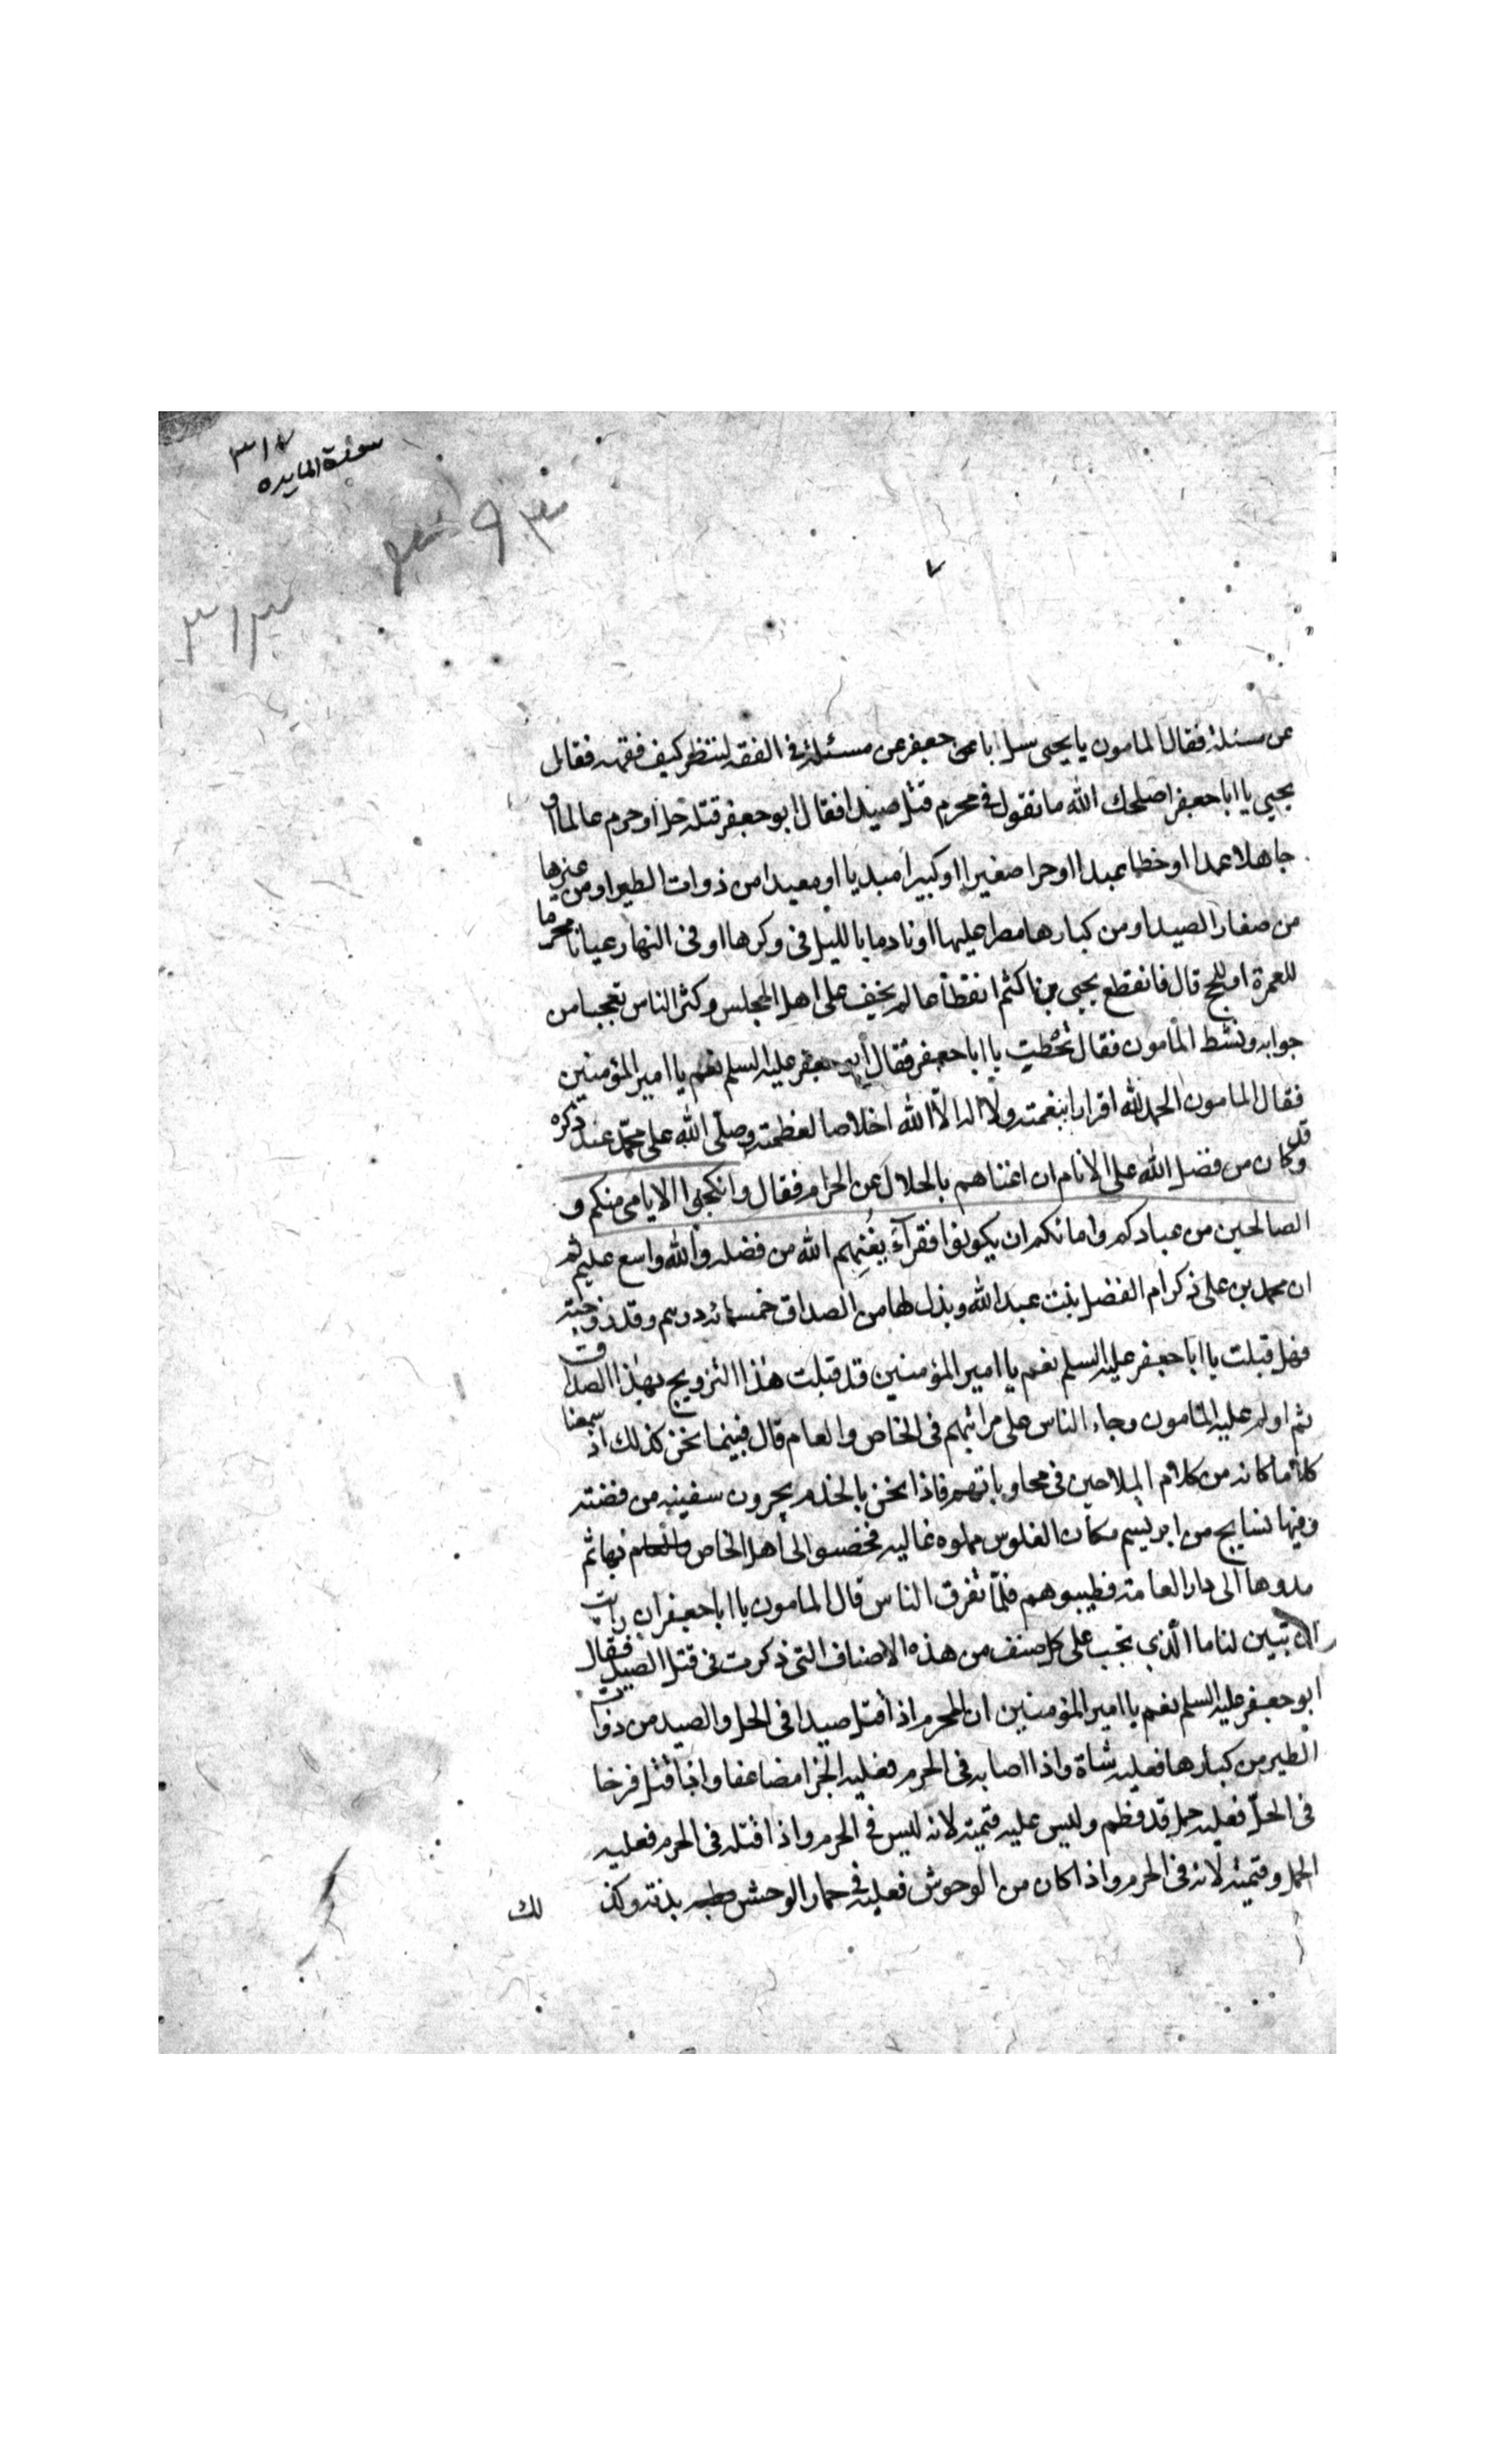 ٣١٧
سورة المايده
٩٣
٣١٣
٧
عن مسئلة فقال المامون يا يحيى سل ابا جعفر عن مسئلة فى الفقه لننظر كيف فقهه فقال
يحيى يا ابا جعفر اصلحك الله ما تقول فى محرم قتل صيدا فقال ابو جعفر قتله حل او حرم عالما او
جاهلا عمدا او خطا عبدا او حرا صغيرا او كبيرا مبديا او معيدا من ذوات الطير او من غيرها
من صغار الصيد او من كبارها مصرا عليها او نادما بالليل فى وكرها او فى النهار عيانا محرما
للعمرة او للحج قال فانقطع يحيى بن اكثم انقطاعا لم يخف على اهل المجلس وكثر الناس تعجبا من
جوابه ونشط المأمون فقال تخطب يا ابا جعفر فقال ابو جعفر عليه السلم نعم يا امير المؤمنين
فقال المامون الحمد لله اقرارا بنعمته ولا اله الا الله اخلاصا لعظمته وصلى الله على محمد عند ذكره
وقد كان من فضل الله على الانام ان اغناهم بالحلال عن الحرام فقال وانكحوا الايامى منكم و
الصالحين من عبادكم وامائكم ان يكونوا فقرآء يغنهم الله من فضله والله واسع عليم ثم
ان محمد بن على ذكر ام الفضل بنت عبد الله وبذل لها من الصداق خمسمائه درهم وقد زوجته
فهل قبلت يا ابا جعفر عليه السلم نعم يا امير المؤمنين قد قبلت هذا التزويج بهذا الصداق
ثم اولم عليه المأمون وجاء الناس على مراتبهم فى الخاص والعام قال فبينما نحن كذلك اذ سمعنا
كلاما كانه من كلام الملاحين فى محاوباتهم فاذا نحن بالخدم يجرون سفينه من فضته
وفيها نسايج من ابريسم مكان القلوس مملوه غاليه فخضبوا لحا اهل الخاص بها ثم
مدوها الى دار العامة فطيبوهم فلمّا تفرق الناس قال المامون يا ابا جعفر ان رايت
ان تبين لنا ما الذي يجب على كل صنف من هذه الاصناف التى ذكرت فى قتل الصيد فقال
ابو جعفر عليه السلم نعم يا امير المؤمنين ان المحرم اذا قتل صيدا فى الحل والصيد من ذوات
الطير من كبارها فعليه شاة واذا اصابه فى الحرم فعليه الجزا مضاعفا واذا قتل فرخا
فى الحلّ فعليه حمل قد فطم وليس عليه قيمته لانه ليس فى الحرم واذا قتله فى الحرم فعليه
الحمل وقيمته لانه فى الحرم واذا كان من الوحوش فعليه فى حمار الوحش بدنة وكذ
لك